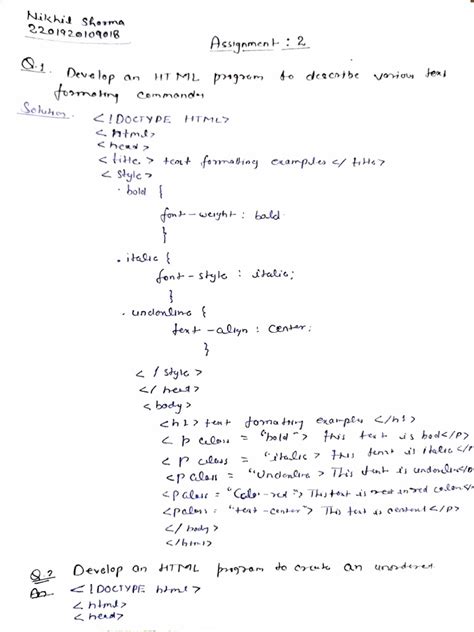 Nikhil Sharma
2201920109018
Assignment : 2
Q.1. Develop an HTML program to describe various text
formating commands
Solution. <!DOCTYPE HTML>
<html>
<head>
<title> text formatting examples </title>
<style>
. bold {
font-weight : bold
}
. italic {
font-style : italic;
}
. underline {
text-align : center;
}
</style>
</head>
<body>
<h1> text formating examples </h1>
<p class = "bold"> This text is bold</p>
<p class = "italic> This text is italic </
<p class = "Underline > This text is underline</
<p class = "Color-red"> This text is red in red color</
<p class = "text-center"> This text is </p>
</body>
</html>
Q.2 Develop an HTML program to create an unordered
An. <!DOCTYPE html>
<html>
<head>